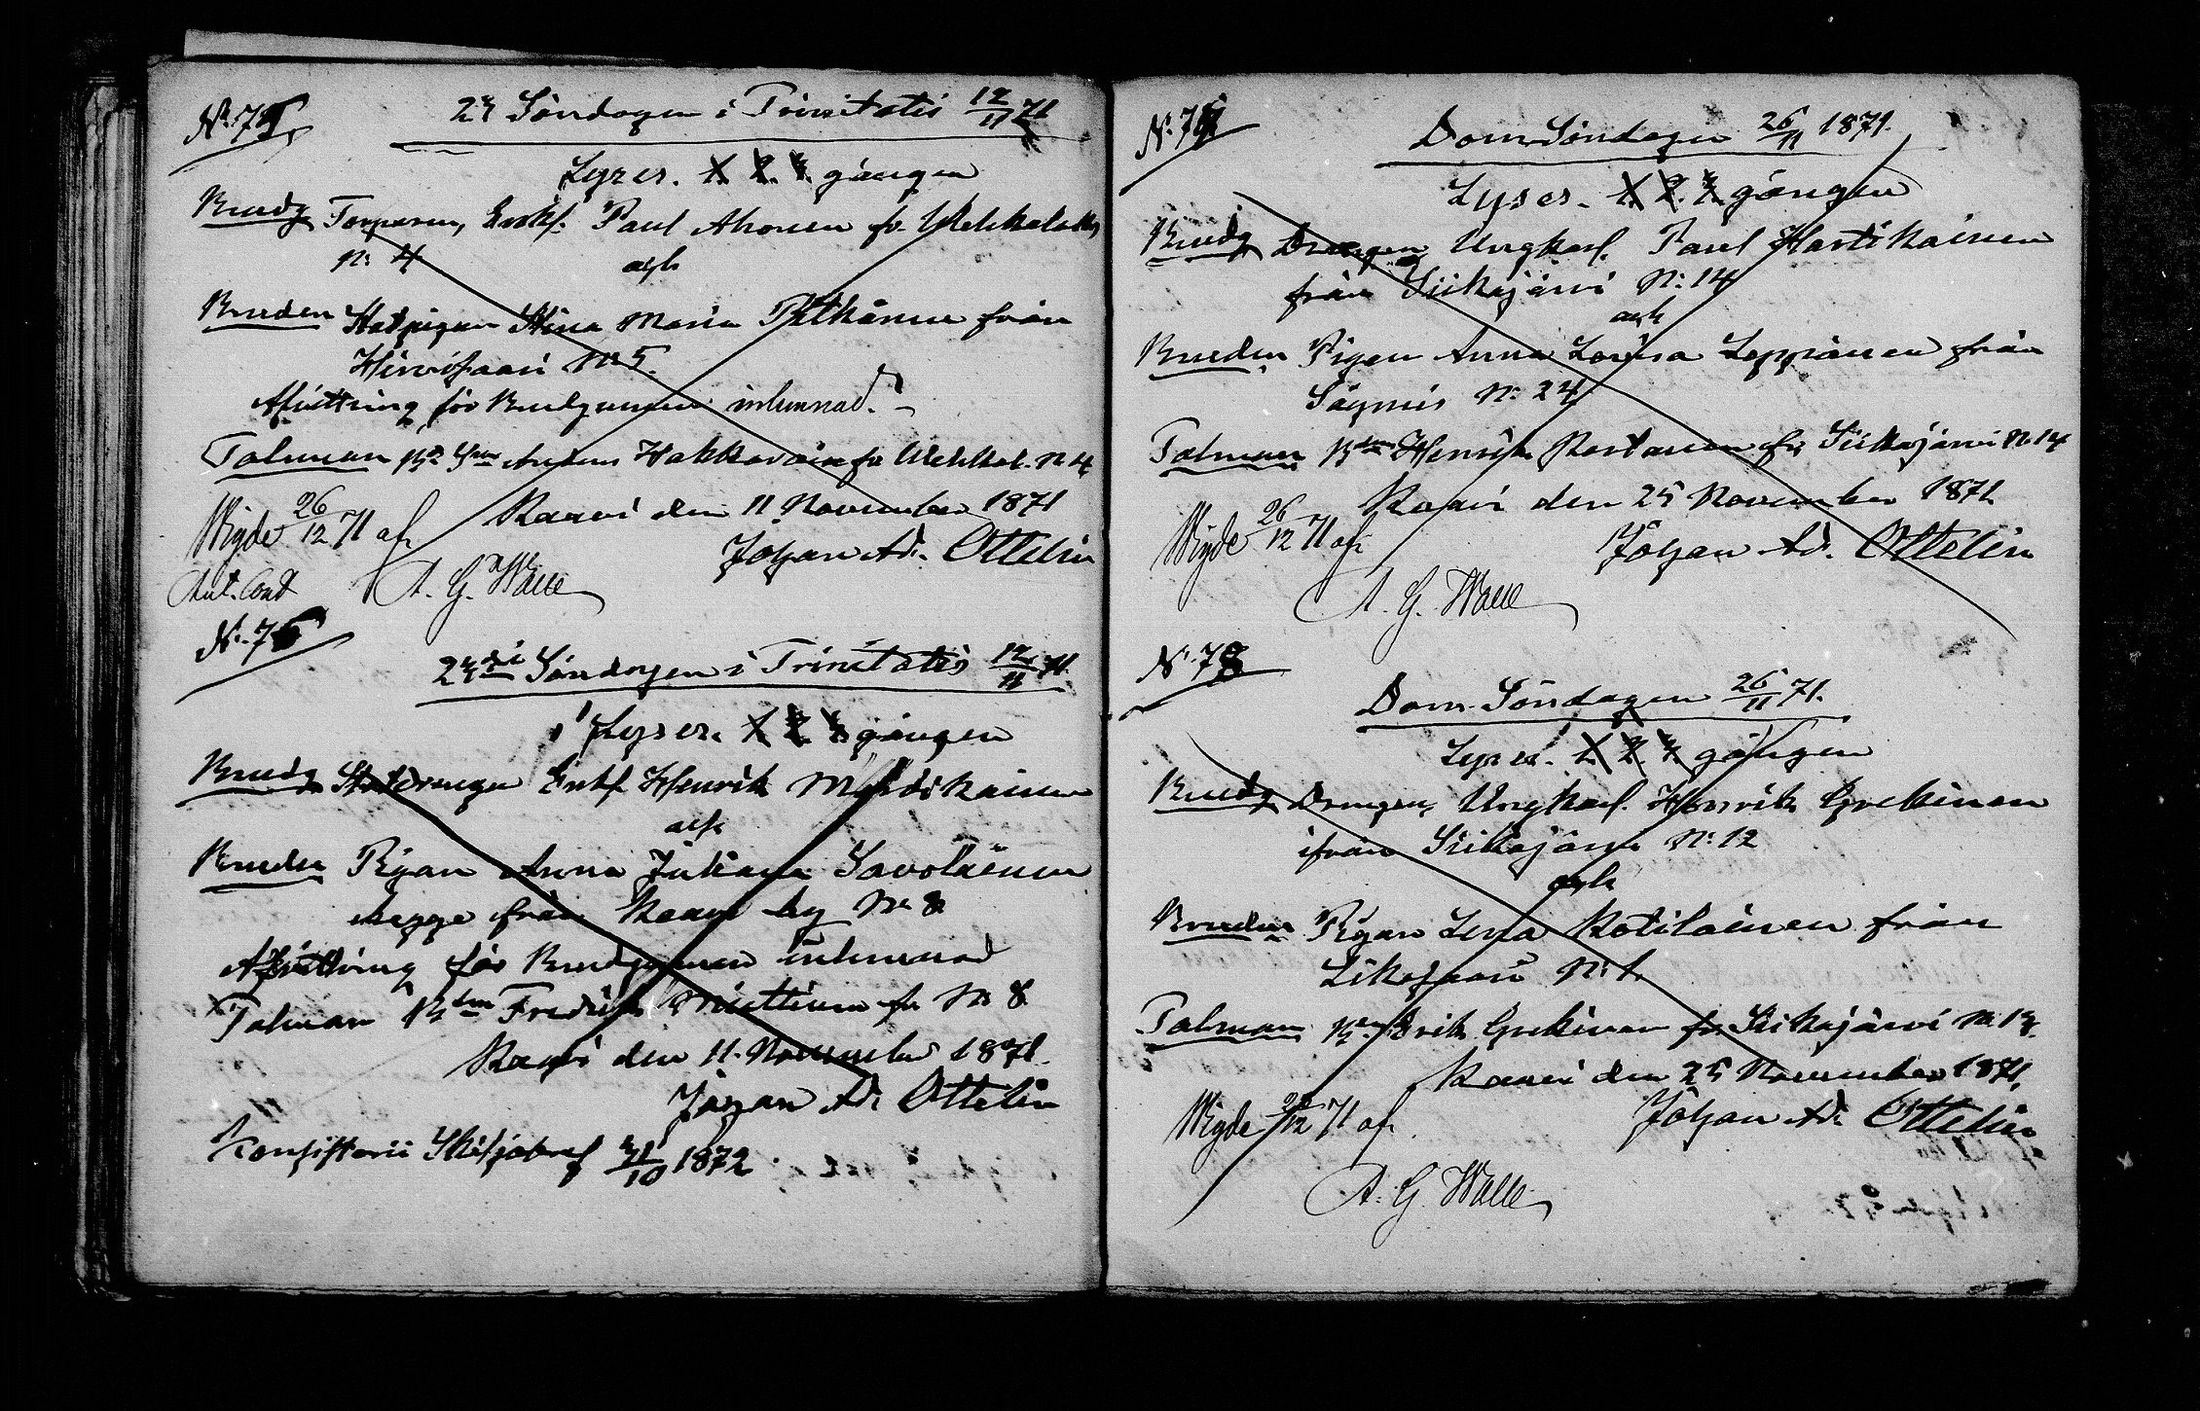 N:o 75
23 Söndagen i Trinitatis 12/11 71
Lyses. 1. 2. 3. gången
Brudg Torparen, Enkl. Paul Ahonen fr.
N: 4
och
Bruden Statpigan Stina Maria Pitkänen från
Hirvisaari N: 5.
Afvittring för Brudgummen inlemnad.
Talman Anders fr N 4
Wigde 26/12 71 af Kaavi den 11 November 1871
Johan Ad. Ottelin
Ant. Cont A. G. Walle
N:o 76
23di Söndagen i Trinitatis 12/11 71.
Lyses. 1. 2. 3. gången
Brudg Statdrengen Enkl Henrik
och
Bruden Pigan Anna Juliana Savolainen
begge från Kaavi by N: 8
Afvittring för Brudgummen inlemnad
Talman Fredrik Miettinen fr N: 8
Kaavi den 11. November 1871.
Johan Ad. Ottelin
Konsistorii Skiljobref 31/10 1872.
N:o 77
Dom-Söndagen 26/11 1871.
Lyses. 1. 2. 3. gången
Brudg Drengen Ungkarl. Paul Hartikainen
från Siikajärvi N: 14
och
Bruden Pigan Anna Lovisa Leppänen från
Sägnäs N: 24
Talman Henrik fr Siikajärvi N 14
Wigde 26/12 71 af Kaavi den 25 November 1871
Johan Ad. Ottelin
A. G. Walle
N:o 78
Dom-Söndagen 26/11 71.
Lyses. 1. 2. 3. gången
Brudg Drengen, Ungkarl. Henrik Grekinen
ifrån Siikajärvi N: 12
och
Bruden Pigan Lena Kotilainen från
N: 1.
Talman Erik Grekinen fr Siikajärvi N: 12.
Kaavi den 25 November 1871.
Wigde 26/12 71 af Johan Ad. Ottelin
A. G. Walle